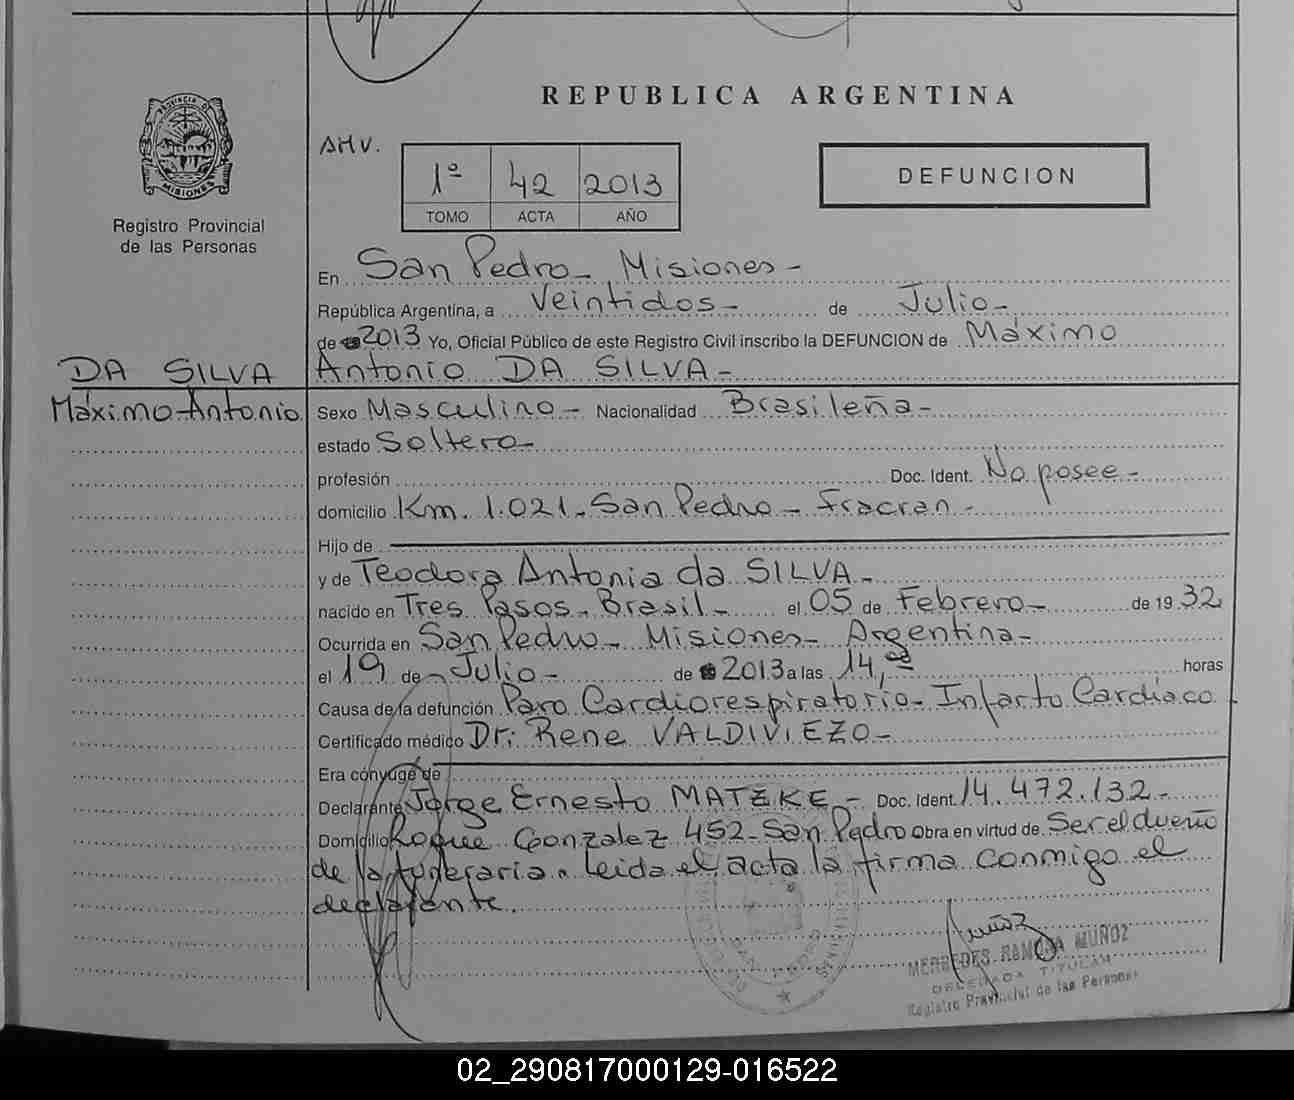 REPUBLICA ARGENTINA
PROVINCIA DE
MISIONES
Registro Provincial
de las Personas
AMV.
1º 42 2013
TOMO ACTA AÑO
DEFUNCION
En San Pedro - Misiones -
República Argentina, a Veintidos - de Julio -
de 2013 Yo, Oficial Público de este Registro Civil inscribo la DEFUNCION de Máximo
DA SILVA Antonio DA SILVA -
Máximo Antonio Sexo Masculino - Nacionalidad Brasileña -
estado Soltero -
profesión Doc. Ident. No posee -
domicilio Km. 1.021 - San Pedro - Fracran -
Hijo de
y de Teodora Antonia da SILVA -
nacido en Tres Pasos - Brasil - el 05 de Febrero - de 19 32
Ocurrida en San Pedro - Misiones - Argentina -
el 19 de - Julio - de 2013 a las 14, horas
Causa de la defunción Paro Cardiorespiratorio - Infarto Cardíaco
Certificado médico Dr: Rene VALDIVIEZO -
Era cónyuge de
Declarante Jorge Ernesto MATZKE - Doc. Ident. 14.472.132 -
Domicilio Roque Gonzalez 452 - San Pedro Obra en virtud de Ser el dueño
de la funeraria. Leida el acta la firma conmigo el
declarante.
Muñoz
MERCEDES RAMONA MUÑOZ
DELEGADA TITULAR
Registro Provincial de las Personas
02_290817000129-016522